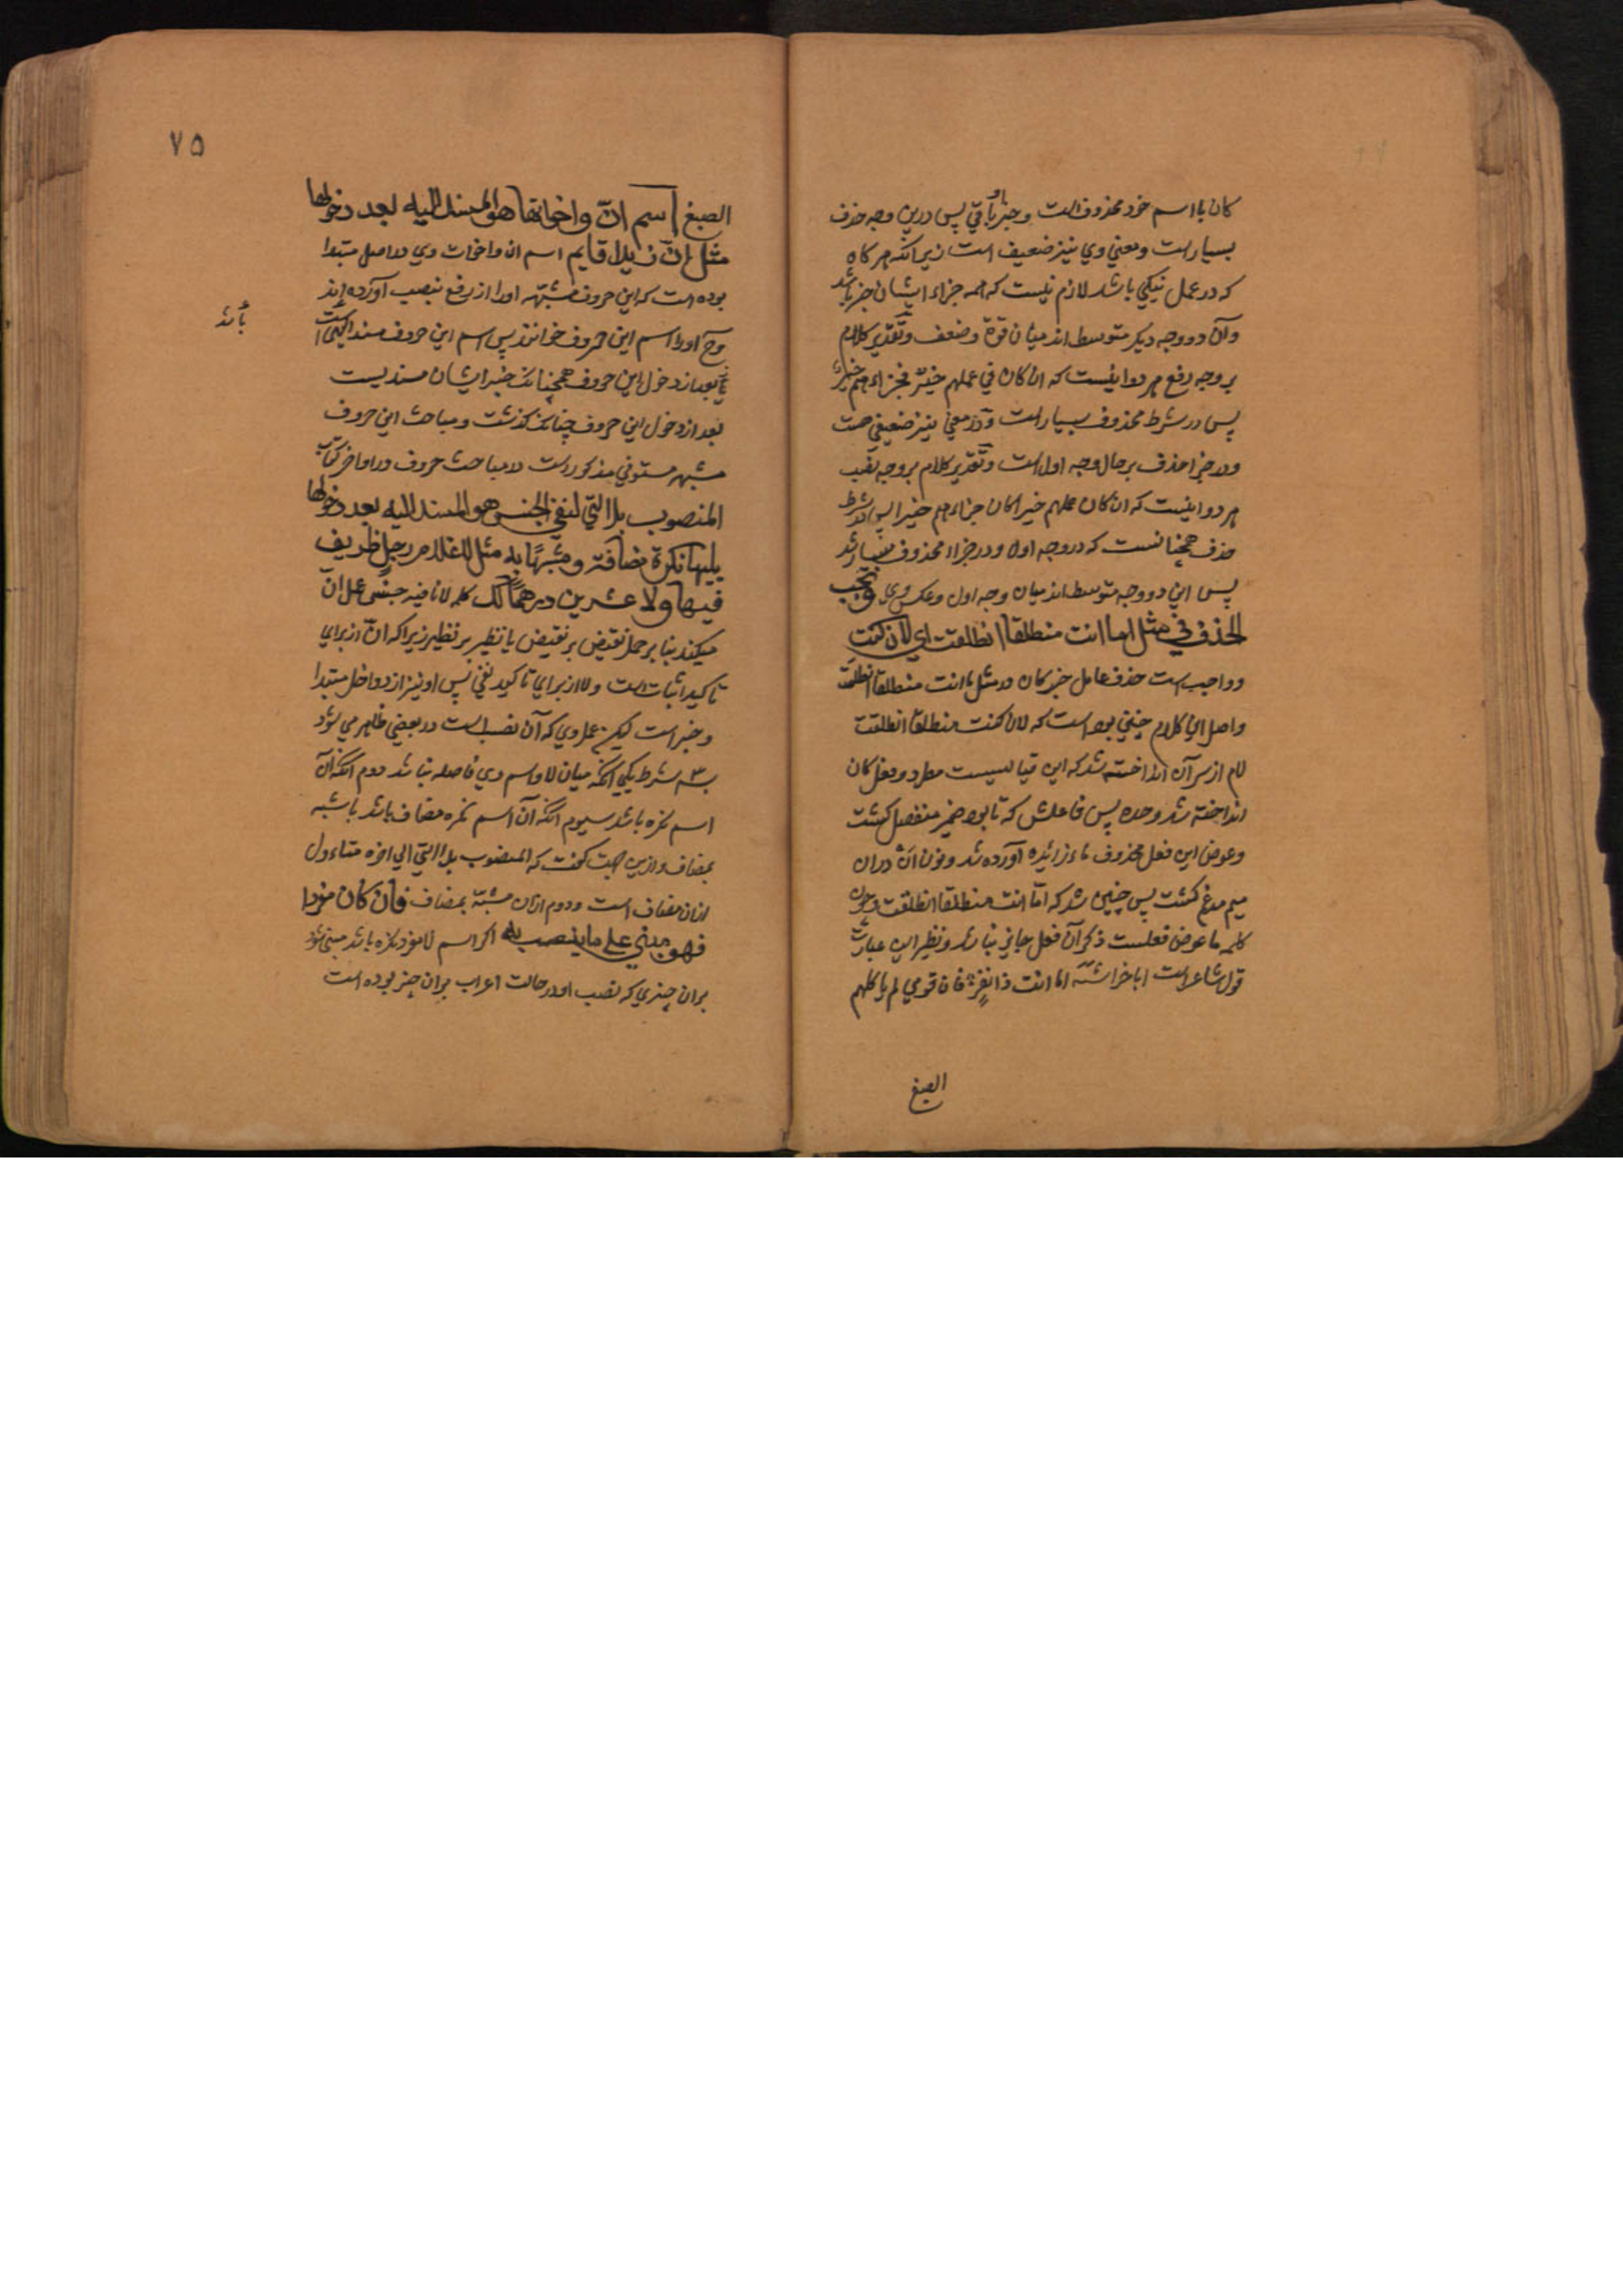 کان با اسم خود محذوفست و خبر او باقی پس درین وجه حذف
بسیار است و معنی وی نیز ضعیف است زیرا انکه هر کاه
که در عمل نیکی باشد لازم نیست که همه جزاء ایشان خیر باشد
وآن دو وجه دیکر متوسط اند میان قوة و ضعف و تقدیر کلام
بر وجه رفع هر دو اینست که ان کان فی عملهم خیرٌ فجزاءهم خیرٌ
پس در شرط محذوف بسیار است و در معنی نیز ضعیفی هست
و در جزا حذف بر حال وجه اول است و تقدیر کلام بر وجه نصب
هر دو اینست که ان کان عملهم خیرا کان جزاءهم خیرا پس در شرط
حذف همچنانست که در وجه اول و در جزاا محذوف بسیار شد
پس این دو وجه متوسط اند میان وجه اول و عکس وی و یجب
الحذف فی مثل اما انت منطلقا انطلقت ای لان کنت
و واجب است حذف عامل خبر کان در مثل اما انت منطلقا انطلقت
واصل این کلام چنین بوده است که لان کنت منطلقا انطلقت
لام از سر آن انداخته شد که این قیاسیست مطرد و فعل کان
انداخته شد وحده پس فاعلش که تا بود ضمیر منفصل کشت
و عوض این فعل محذوف ماء زائده آورده شد و نون ان دران
میم مدغم کشت پس چنین شد که امّا انت منطلقا انطلقت و چون
کلمه ما عوض فعلست ذکر آن فعل جایز نباشد و نظیر این عبارت
قول شاعر است ابا خراشة اما انت ذا نفر فان قومی لم یاکلهم
الصبغ
۷۵
الصبغ اسم انّ واخواتها هو المسند الیه بعد دخولها
مثل إنّ زیدا قایم اسم ان واخوات وی در اصل مبتدا
بوده است که این حروف مشبهه او را از رفع بنصب آورده اند
وح او را اسم این حروف خوانند پس اسم این حروف مسند الیه است
بعد از دخول این حروف همچنانک خبر ایشان مسندیست
بعد از دخول این حروف چنانک کذشت و مباحث این حروف
مشبهه مستوفی مذکور است در مباحث حروف در اواخر کتاب
باشد
المنصوب بلا التی لنفی الجنس هو المسند الیه بعد دخولها
یلیها نکرة مضافة و مشبّهًا به مثل لا غلام رجل ظریف
فیها ولا عشرین درهما لک کلمه لا نافیه جنس عمل انّ
میکند بنا بر حمل نقیض بر نقیض یا نظیر بر نظیر زیرا که انّ از برای
تاکید اثبات است و لا از برای تاکید نفی پس او نیز از دواخل مبتدا
و خبر است لیکن عمل وی که آن نصب است در بعضی ظاهر می شود
بسه شرط یکی انکه میان لا و اسم وی فاصله نباشد دوم انکه آن
اسم نکره باشد سیوم انکه آن اسم نکره مضاف باشد یا شبه
بمضاف و ازین جهت کفت که المنصوب بلا التی الی اخره مثاء ول
ازان مضاف است و دوم ازان مشبّه بمضاف فان کان مفردا
فهو مبنی علی ما ینصب به اکر اسم لا مفرد نکره باشد مبنی شود
بران چیزی که نصب او در حالت اعراب بران چیز بوده است